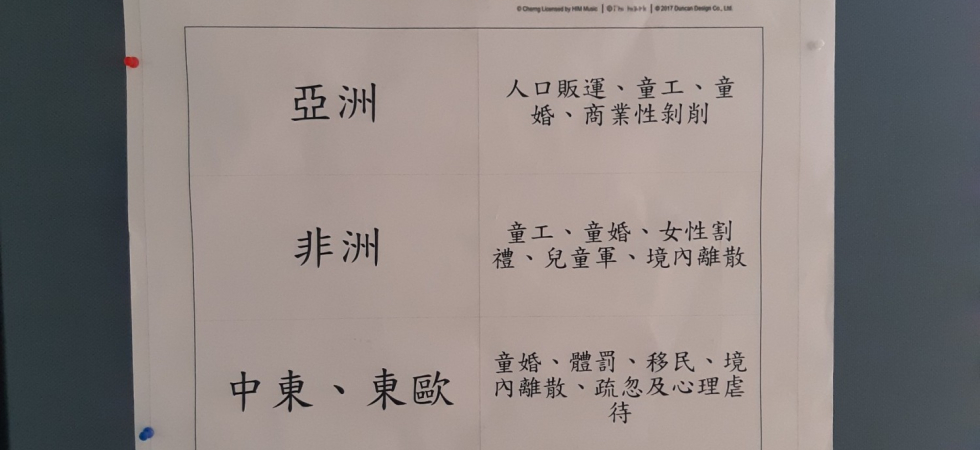 © Cherng Licensed by HIM Music
© 2017 Duncan Design Co., Ltd.
亞洲
人口販運、童工、童
婚、商業性剝削
非洲
童工、童婚、女性割
禮、兒童軍、境內離散
中東、東歐
童婚、體罰、移民、境
內離散、疏忽及心理虐
待